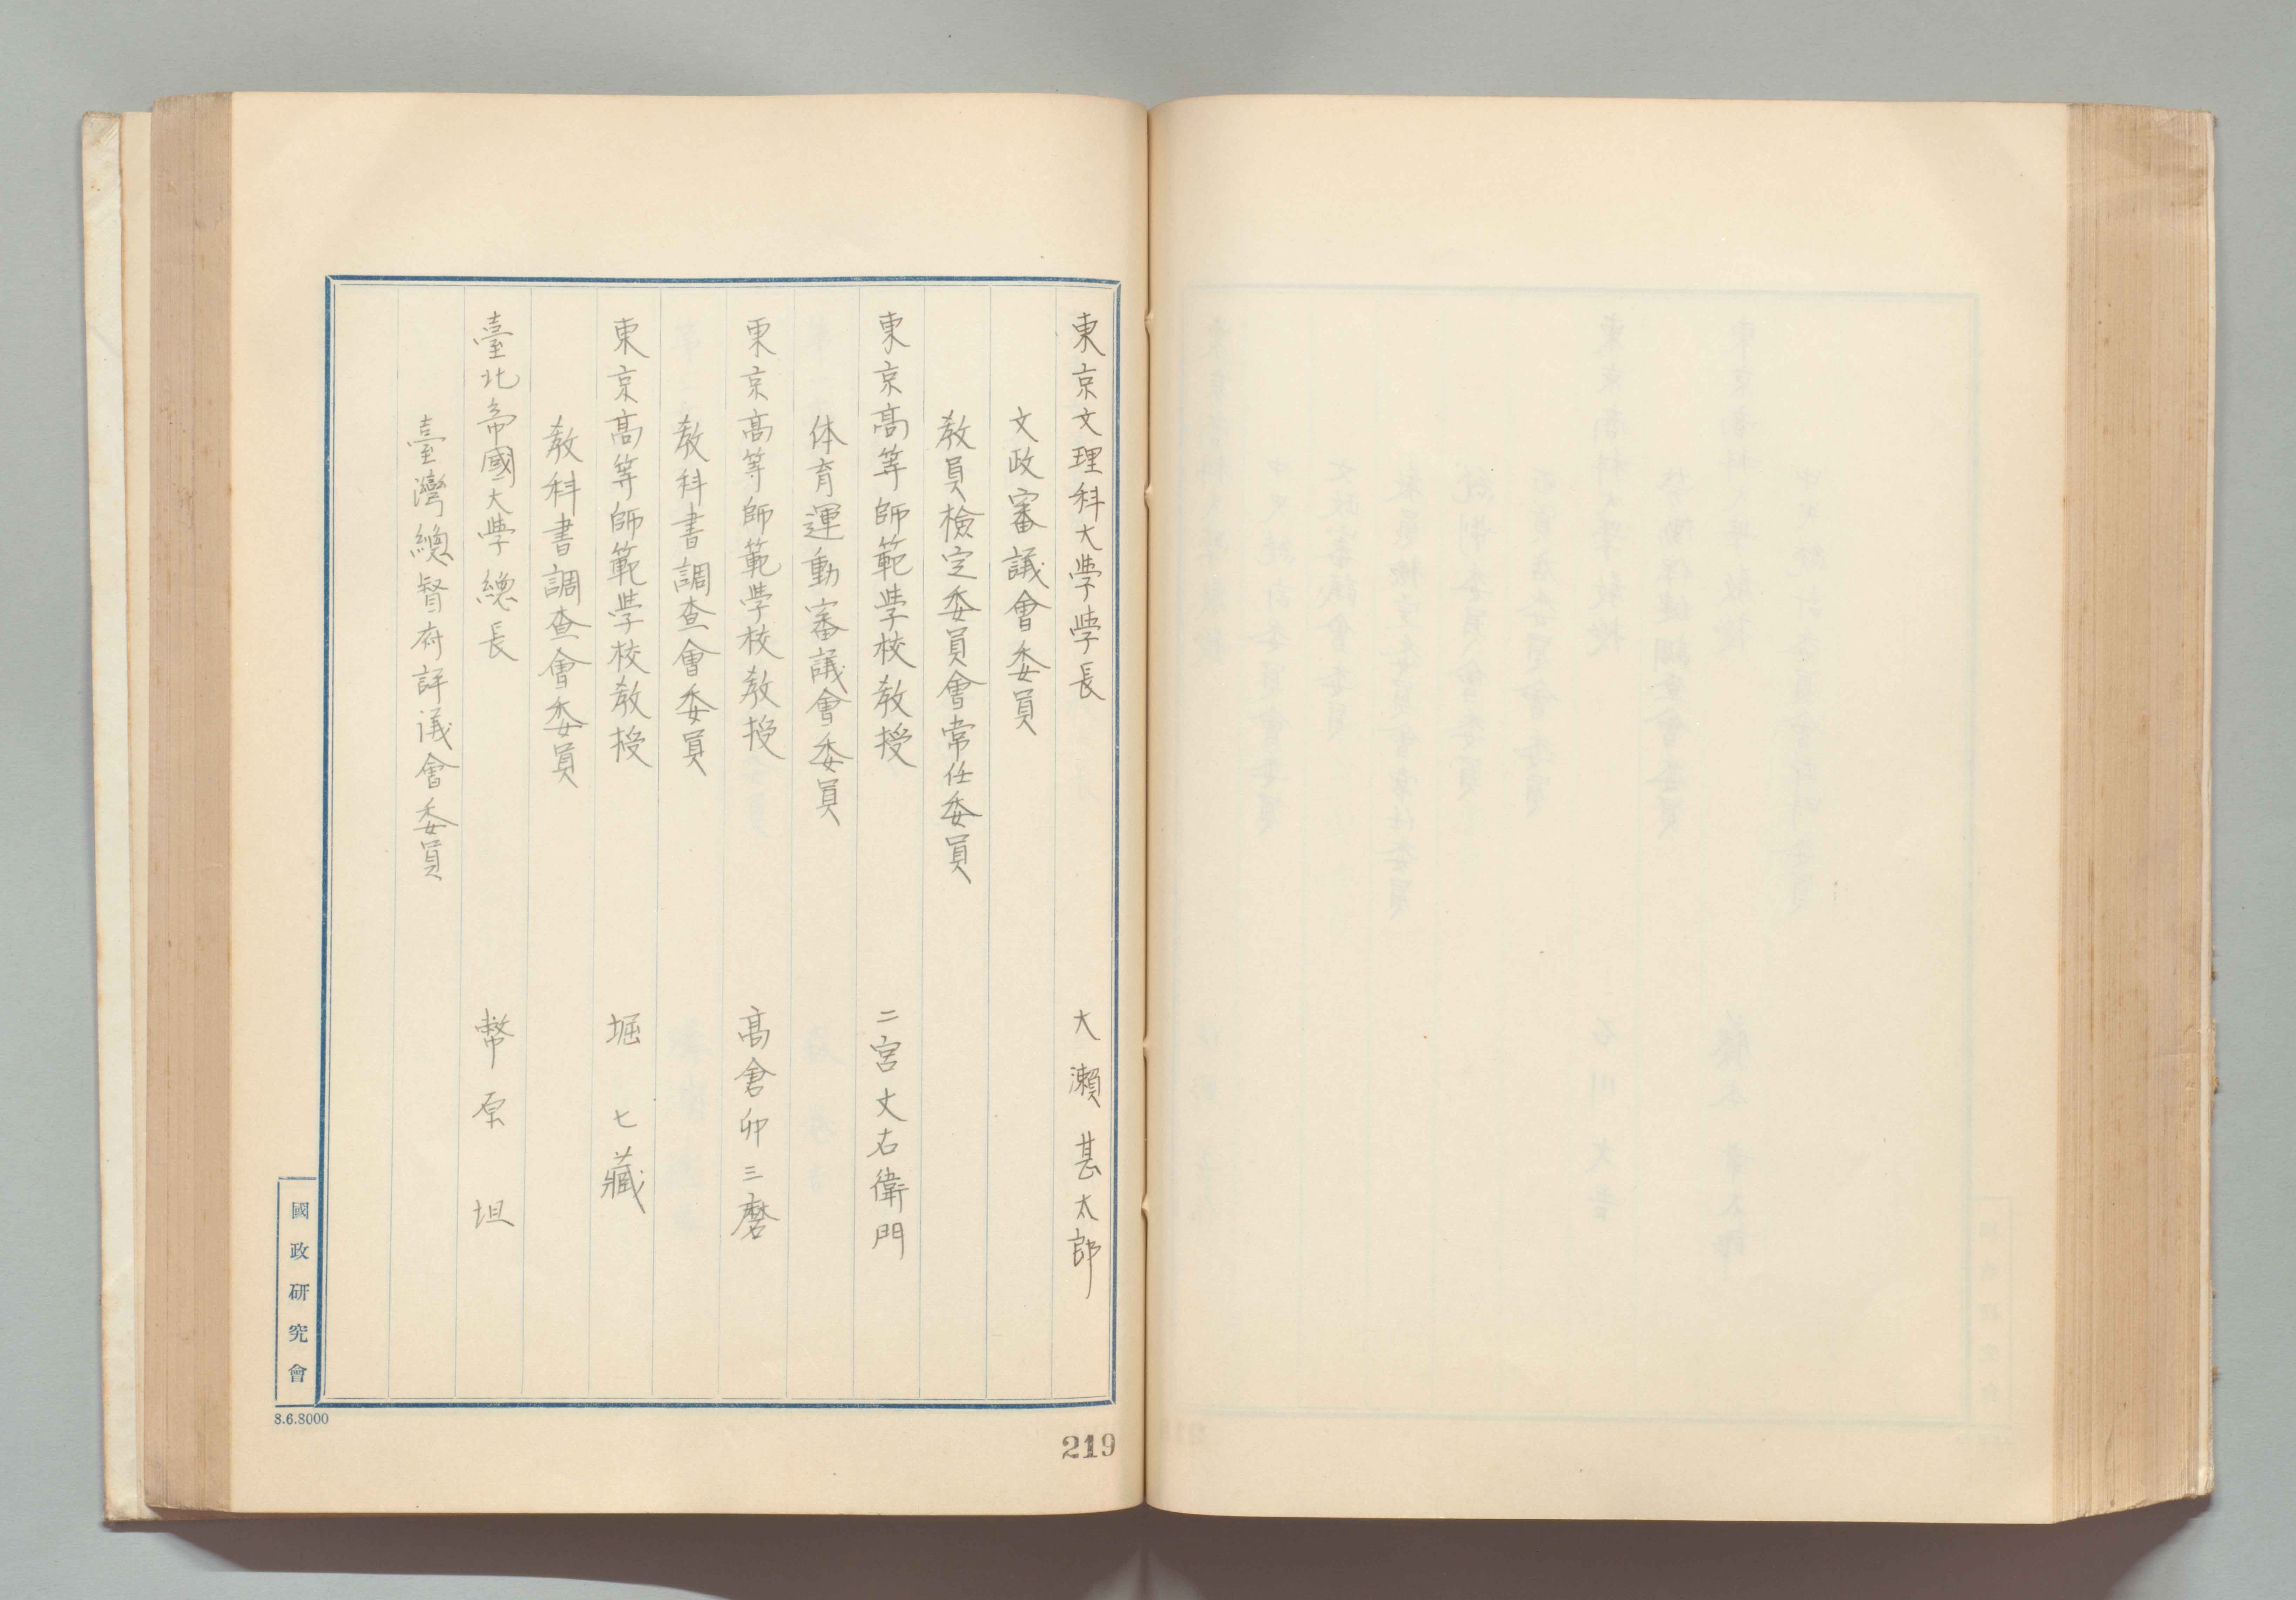 東京文理科大学学長　大瀬甚太郎
文政審議會委員
教員檢定委員會常任委員
東京高等師範学校教授　二宮文右衛門
体育運動審議會委員
東京高等師範学校教授　高倉卯三磨
教科書調査會委員
東京高等師範学校教授　堀七藏
教科書調査會委員
臺北帝國大学總長　幣原坦
臺灣總督府評議會委員
國政研究會
8.6.8000
219